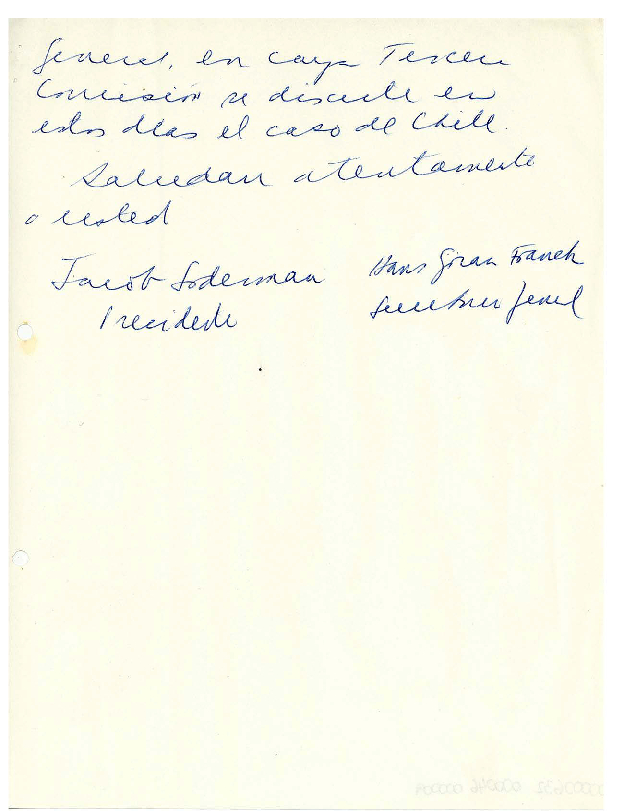 General, en cuya Tercera
Comisión se discute en
estos días el caso de Chile.
Saludan atentamente
a usted
Jacob Soderman Hans Göran Franck
Presidente Secretario General